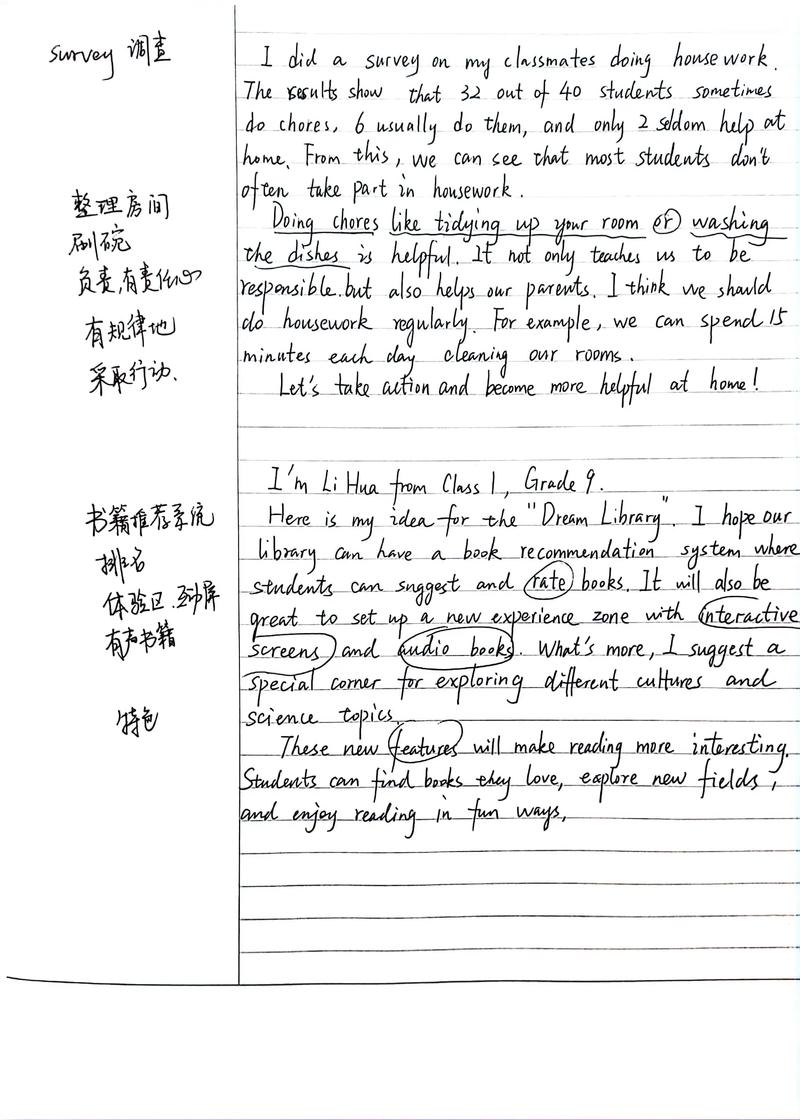 survey 调查
I did a survey on my classmates doing housework.
The results show that 32 out of 40 students sometimes
do chores, 6 usually do them, and only 2 seldom help at
home. From this, we can see that most students don't
often take part in housework.
整理房间
刷碗
负责,有责任心
有规律地
采取行动.
Doing chores like tidying up your room or washing
the dishes is helpful. It not only teaches us to be
responsible. but also helps our parents. I think we should
do housework regularly. For example, we can spend 15
minutes each day cleaning our rooms.
Let's take action and become more helpful at home!
I'm Li Hua from Class 1, Grade 9.
书籍推荐系统
排名
体验区. 互动屏
有声书籍
特色
Here is my idea for the "Dream Library". I hope our
library can have a book recommendation system where
students can suggest and rate books. It will also be
great to set up a new experience zone with interactive
screens and audio books. What's more, I suggest a
special corner for exploring different cultures and
science topics.
These new features will make reading more interesting.
Students can find books they love, explore new fields,
and enjoy reading in fun ways,